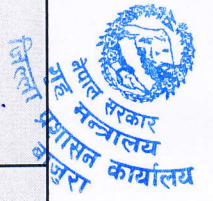 नेपाल सरकार
गृह मन्त्रालय
जिल्ला प्रशासन कार्यालय
बाजुरा